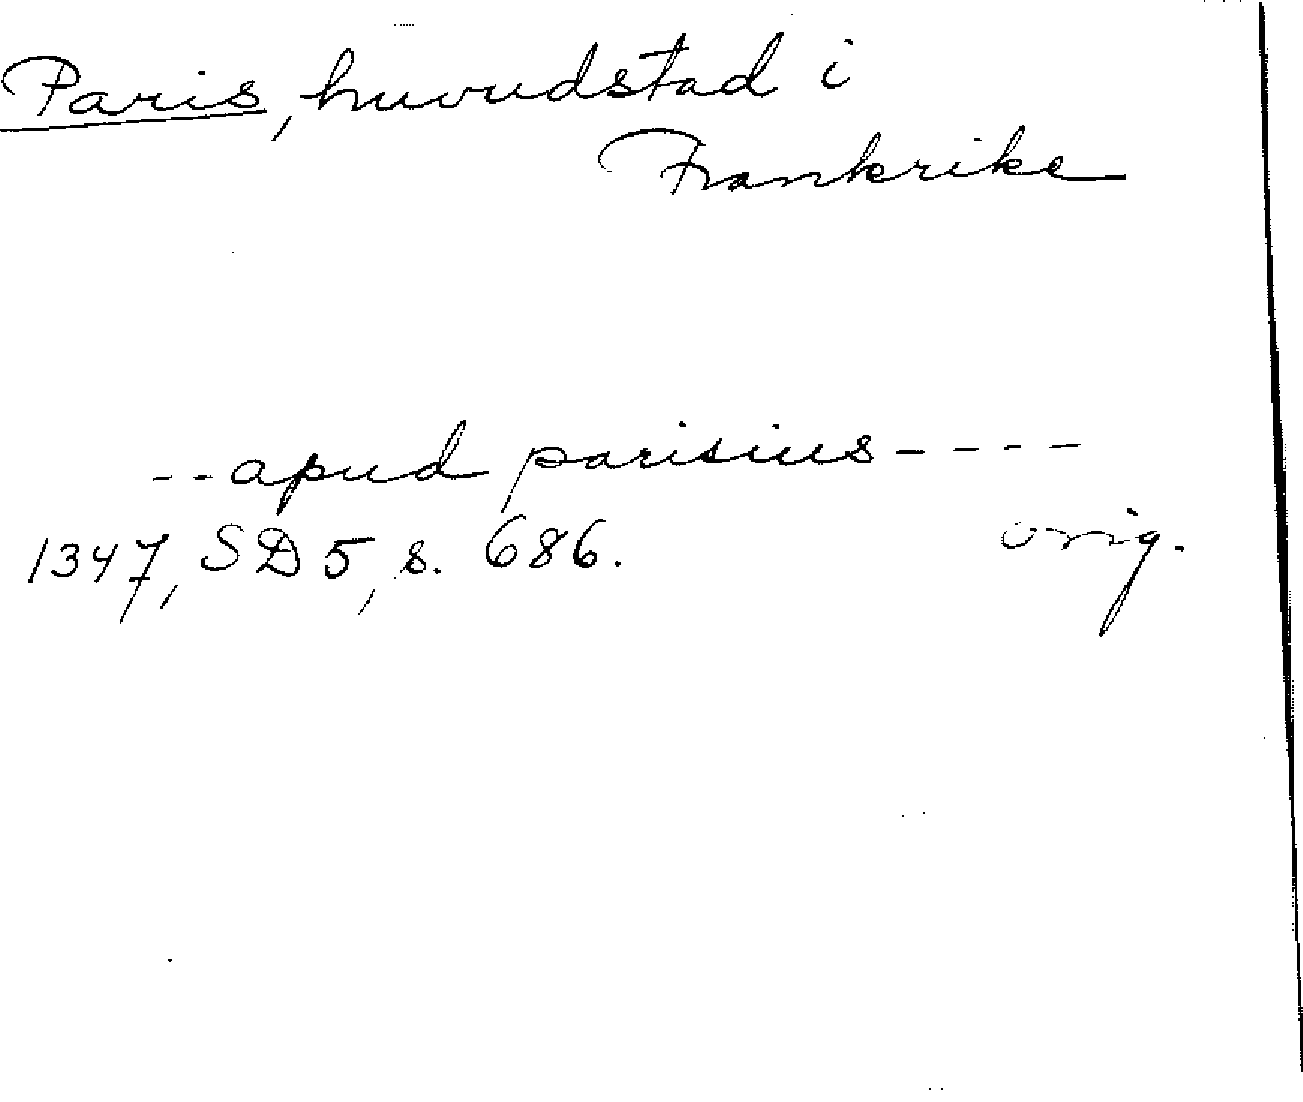 Paris, huvudstad i
Frankrike
--apud parisius----
1347, SD 5, s. 686. orig.